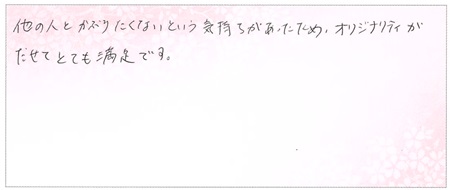 他の人とかぶりたくないという気持ちがあったため、オリジナリティが
だせてとても満足です。